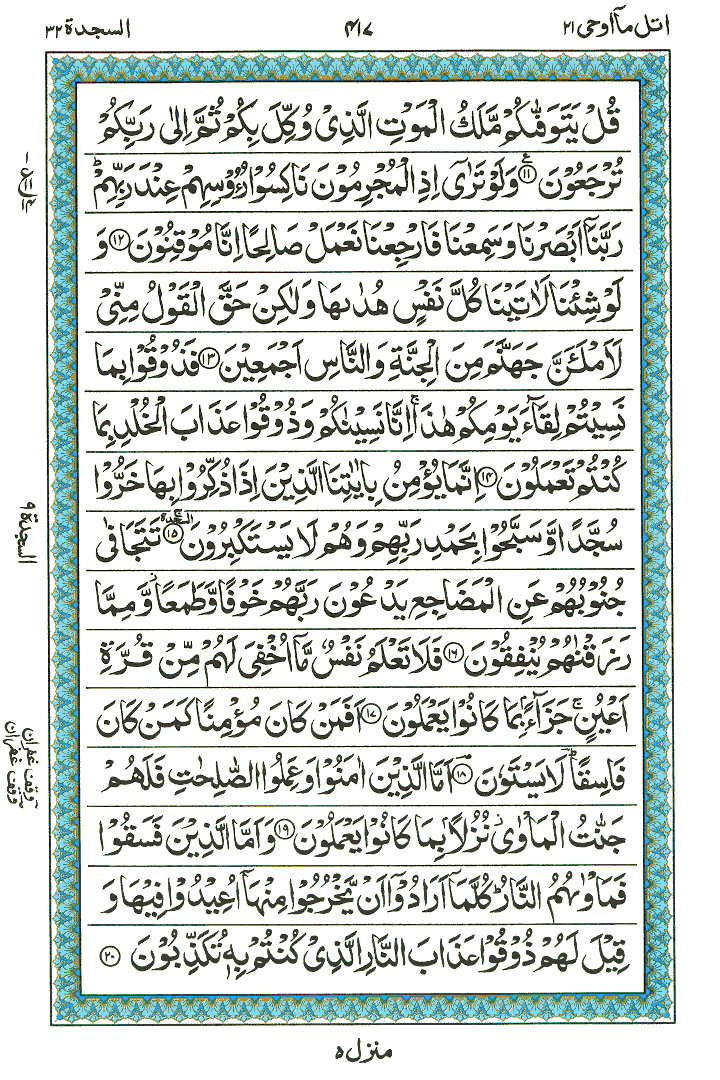 اتل مآاوحی ۲۱
۴۱۷
السجدة ۳۲
قُلْ يَتَوَفّٰىكُمْ مَّلَكُ الْمَوْتِ الَّذِىْ وُكِّلَ بِكُمْ ثُمَّ اِلٰى رَبِّكُمْ
تُرْجَعُوْنَ ۝۱۱ وَلَوْ تَرٰٓى اِذِ الْمُجْرِمُوْنَ نَاكِسُوْا رُءُوْسِهِمْ عِنْدَ رَبِّهِمْؕ
رَبَّنَاۤ اَبْصَرْنَا وَسَمِعْنَا فَارْجِعْنَا نَعْمَلْ صَالِحًا اِنَّا مُوْقِنُوْنَ ۝۱۲ وَ
لَوْ شِئْنَا لَاٰتَيْنَا كُلَّ نَفْسٍ هُدٰىهَا وَلٰكِنْ حَقَّ الْقَوْلُ مِنِّىْ
لَاَمْلَـَٔنَّ جَهَنَّمَ مِنَ الْجِنَّةِ وَالنَّاسِ اَجْمَعِيْنَ ۝۱۳ فَذُوْقُوْا بِمَا
نَسِيْتُمْ لِقَآءَ يَوْمِكُمْ هٰذَاۚ اِنَّا نَسِيْنٰكُمْ وَذُوْقُوْا عَذَابَ الْخُلْدِ بِمَا
كُنْتُمْ تَعْمَلُوْنَ ۝۱۴ اِنَّمَا يُؤْمِنُ بِاٰيٰتِنَا الَّذِيْنَ اِذَا ذُكِّرُوْا بِهَا خَرُّوْا
سُجَّدًا وَّسَبَّحُوْا بِحَمْدِ رَبِّهِمْ وَهُمْ لَا يَسْتَكْبِرُوْنَ ۝۱۵ السجدة تَتَجَافٰى
جُنُوْبُهُمْ عَنِ الْمَضَاجِعِ يَدْعُوْنَ رَبَّهُمْ خَوْفًا وَّطَمَعًا وَّمِمَّا
رَزَقْنٰهُمْ يُنْفِقُوْنَ ۝۱۶ فَلَا تَعْلَمُ نَفْسٌ مَّاۤ اُخْفِىَ لَهُمْ مِّنْ قُرَّةِ
اَعْيُنٍۚ جَزَآءًۢ بِمَا كَانُوْا يَعْمَلُوْنَ ۝۱۷ اَفَمَنْ كَانَ مُؤْمِنًا كَمَنْ كَانَ
فَاسِقًاؕ لَا يَسْتَوٗنَ ۝۱۸ اَمَّا الَّذِيْنَ اٰمَنُوْا وَعَمِلُوا الصّٰلِحٰتِ فَلَهُمْ
جَنّٰتُ الْمَاْوٰى نُزُلًاۢ بِمَا كَانُوْا يَعْمَلُوْنَ ۝۱۹ وَاَمَّا الَّذِيْنَ فَسَقُوْا
فَمَاْوٰىهُمُ النَّارُؕ كُلَّمَاۤ اَرَادُوْۤا اَنْ يَّخْرُجُوْا مِنْهَاۤ اُعِيْدُوْا فِيْهَا وَ
قِيْلَ لَهُمْ ذُوْقُوْا عَذَابَ النَّارِ الَّذِىْ كُنْتُمْ بِهٖ تُكَذِّبُوْنَ ۝۲۰
السجدة ۹
وقف غفران
وقف غفران
منزل ۵